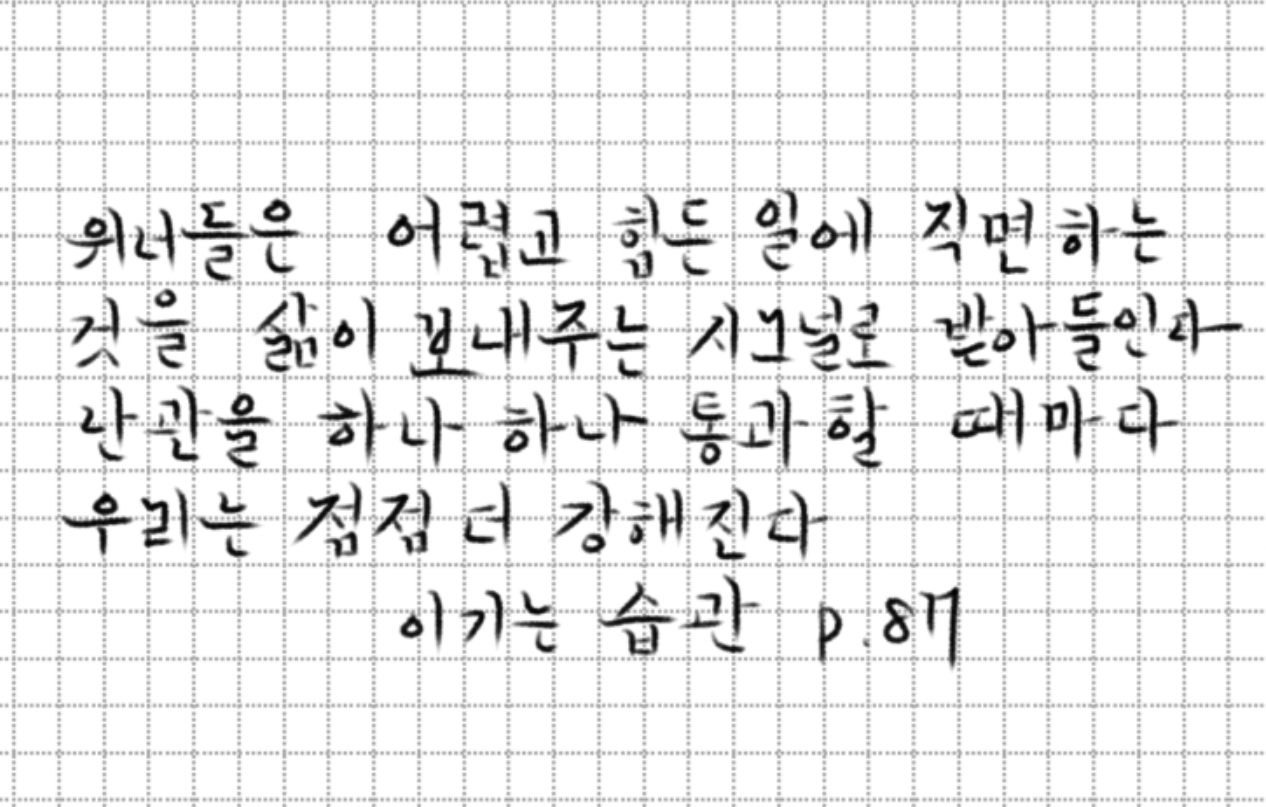 위너들은 어렵고 힘든 일에 직면하는
것을 삶이 보내주는 시그널로 받아들인다
난관을 하나 하나 통과할 때마다
우리는 점점 더 강해진다
이기는 습관 p.87